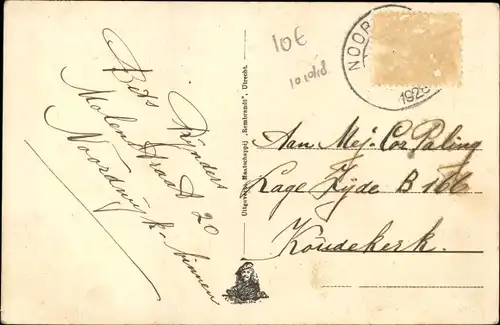 10€
10 10/18
NOOR
1926
Bets Rijnders
Molenstraat 20
Noordwijk-Binnen
Uitgevers Maatschappij „Rembrandt", Utrecht.
Aan Mej. Cor Paling
Lage Zijde B 166
Koudekerk.